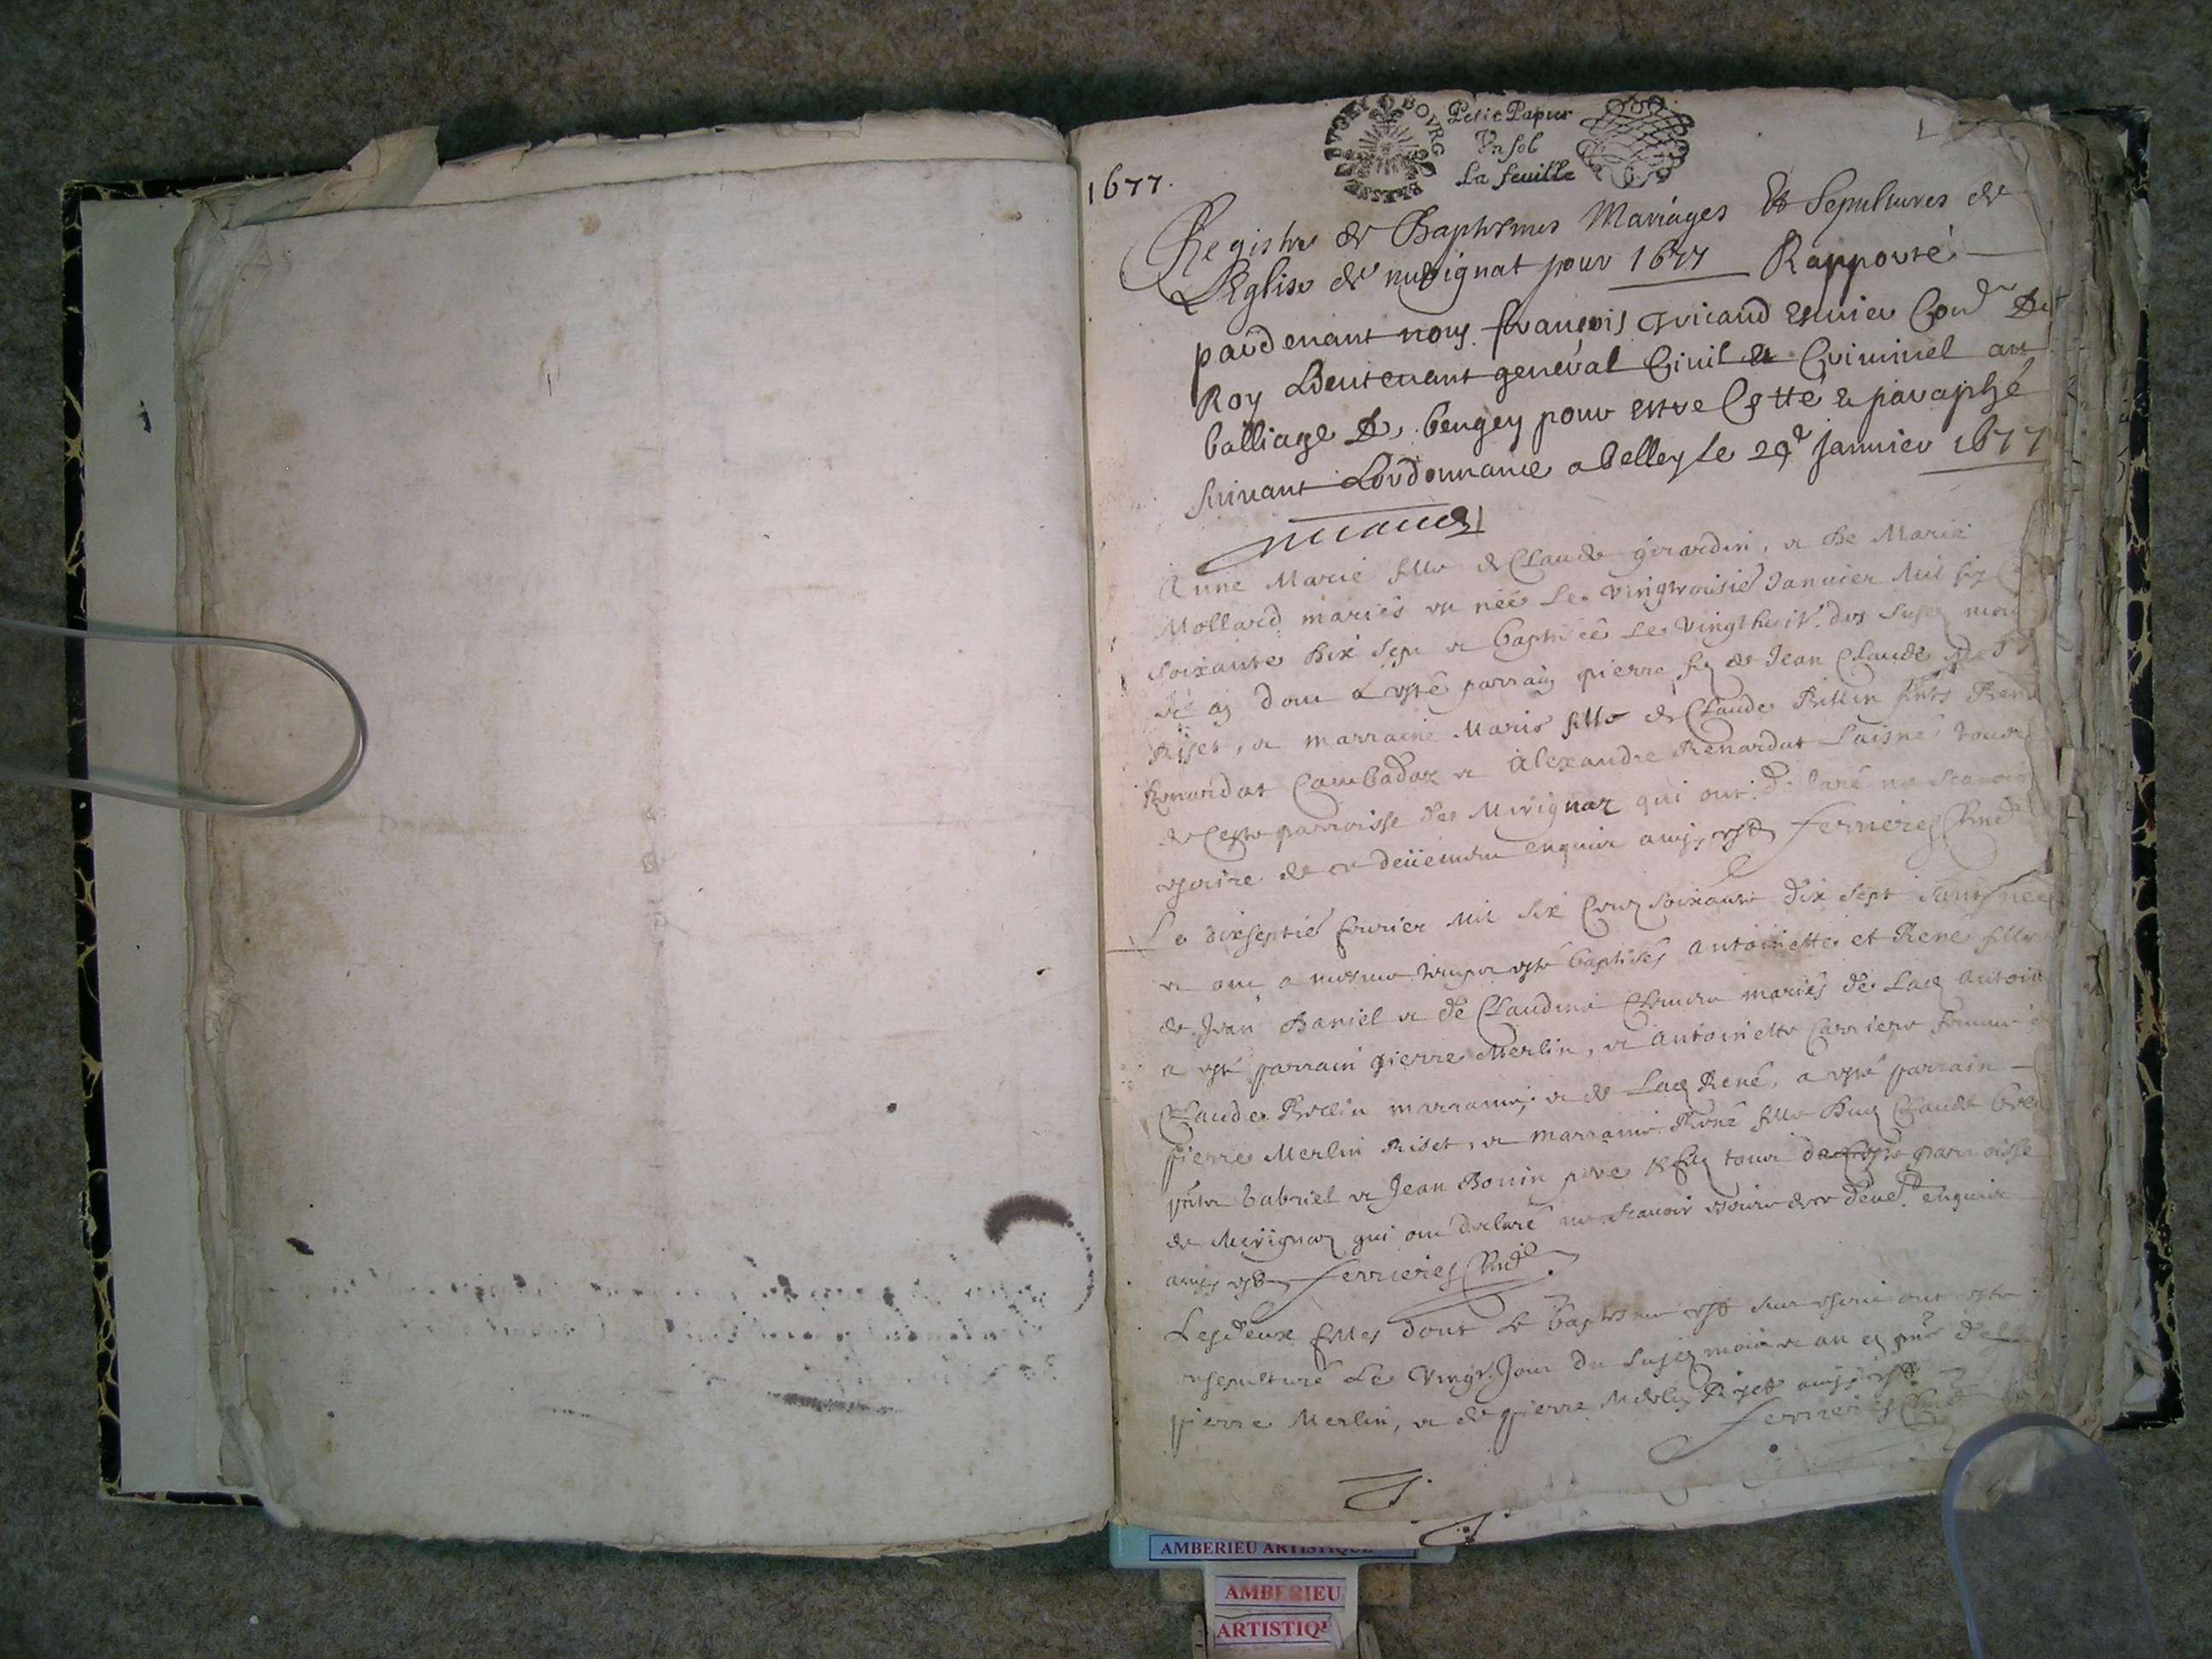 1677.
BRESSE BVGEY BOVRG
Petit Papier
Vn sol
La feuille
Registre de Baptesmes Mariages Et Sepultures de
L'Eglise de murignat pour 1677 Rapporté
pardenant nous françois Escuier Con.r Du
Roy Lieutenant general Ciuil et Criminel au
balliage De beugey pour estre Cotté et paraphé
suiuant Lordonnance a belley le 29e Januier 1677
Anne Marie fille de Claude gerardin, et de Marie
Mollard mariés est née Le vingtroisié Januier Mil six
soixante dix sept et baptisée Le vingthuit des susd mois
et an dont a esté parrain pierre fis de Jean Claude
Riset, et marraine Marie fille de Claude Rellin pnts René
Renardat et Alexandre Renardat Laisné tous
de Ceste parroisse de Mirignaz qui ont declaré ne scauoir
escrire de ce deüement enquis ainsy est Ferrieres
Le dixseptié feurier Mil six Cens soixante dix sept sont nées
et ont a mesme temps esté baptisées antoinette et Rene filles
de Jean Daniel et de Claudine mariés de Laq antoin
a esté parrain pierre Merlin, et antoinette Carriere femme
Claude Rellin marraine, et de Laq René, a esté parrain
pierre Merlin Riset, et marraine René fille Claude
pnts Gabriel et Jean Bonin pere & fils tous de Ceste parroisse
de Mirignaz qui ont declaré ne scauoir escrire de ce enquis
ainsy est Ferrieres
Lesdeux filles dont Le baptesme est sus escrit ont esté
ensepulturé Le vingt Jour du susd mois et an
pierre Merlin, et de pierre Merlin Riset ainsy est
Ferrieres
AMBERIEU ARTISTIQUE
AMBERIEU
ARTISTIQU